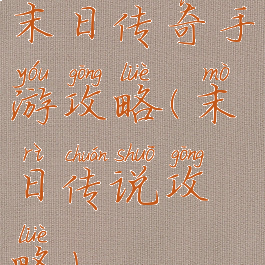 末日传奇手
yóu gōng lüè mò
游攻略(末
rì chuán shuō gōng
日传说攻
lüè
略)